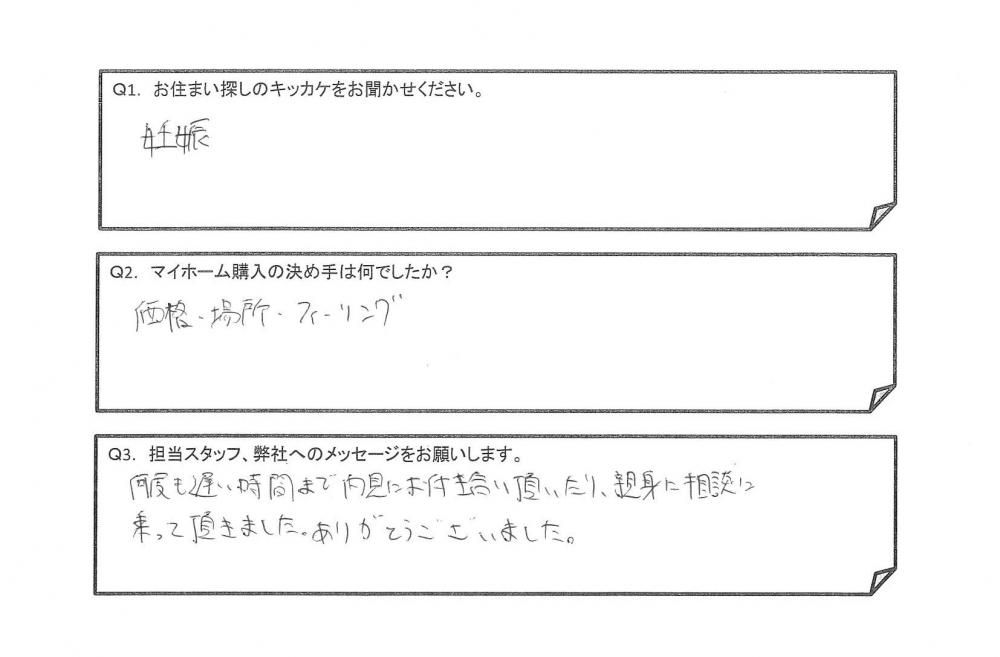 Q1. お住まい探しのキッカケをお聞かせください。
妊娠
Q2. マイホーム購入の決め手は何でしたか？
価格・場所・フィーリング
Q3. 担当スタッフ、弊社へのメッセージをお願いします。
何度も遅い時間まで内見にお付き合い頂いたり、親身に相談に
乗って頂きました。ありがとうございました。